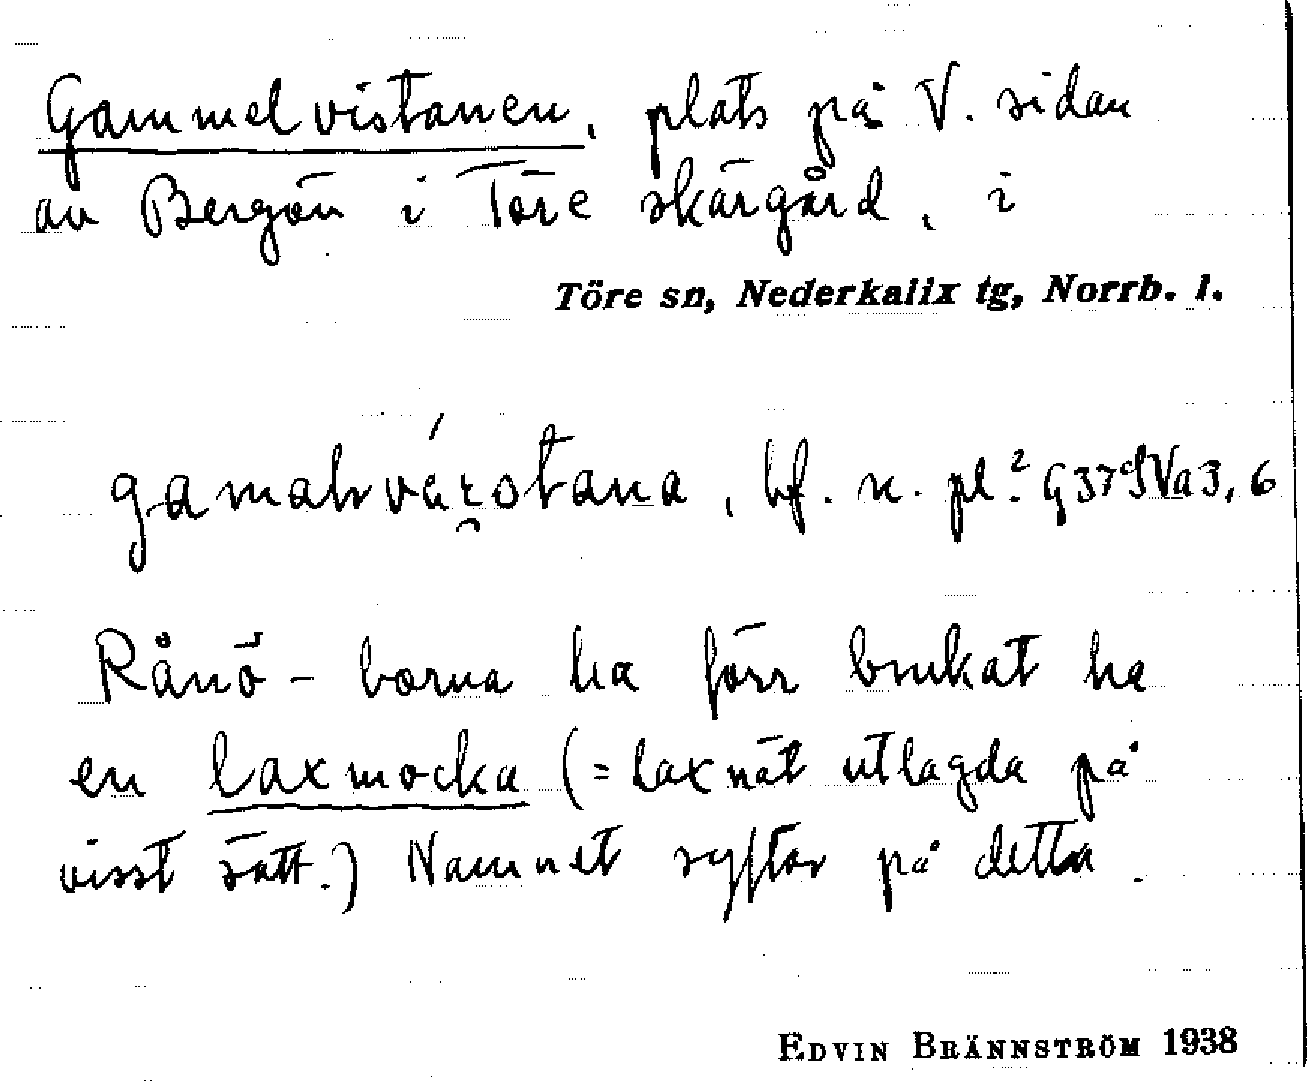 Gammelvistanen, plats på V. sidan
av Bergön i Töre skärgård, i
Töre sn, Nederkalix tg, Norrb. l.
bf. n. pl.?
Rånö-borna ha förr brukat ha
en laxmocka (= laxnät utlagda på
visst sätt.) Namnet syftar på detta.
EDVIN BRÄNNSTRÖM 1938